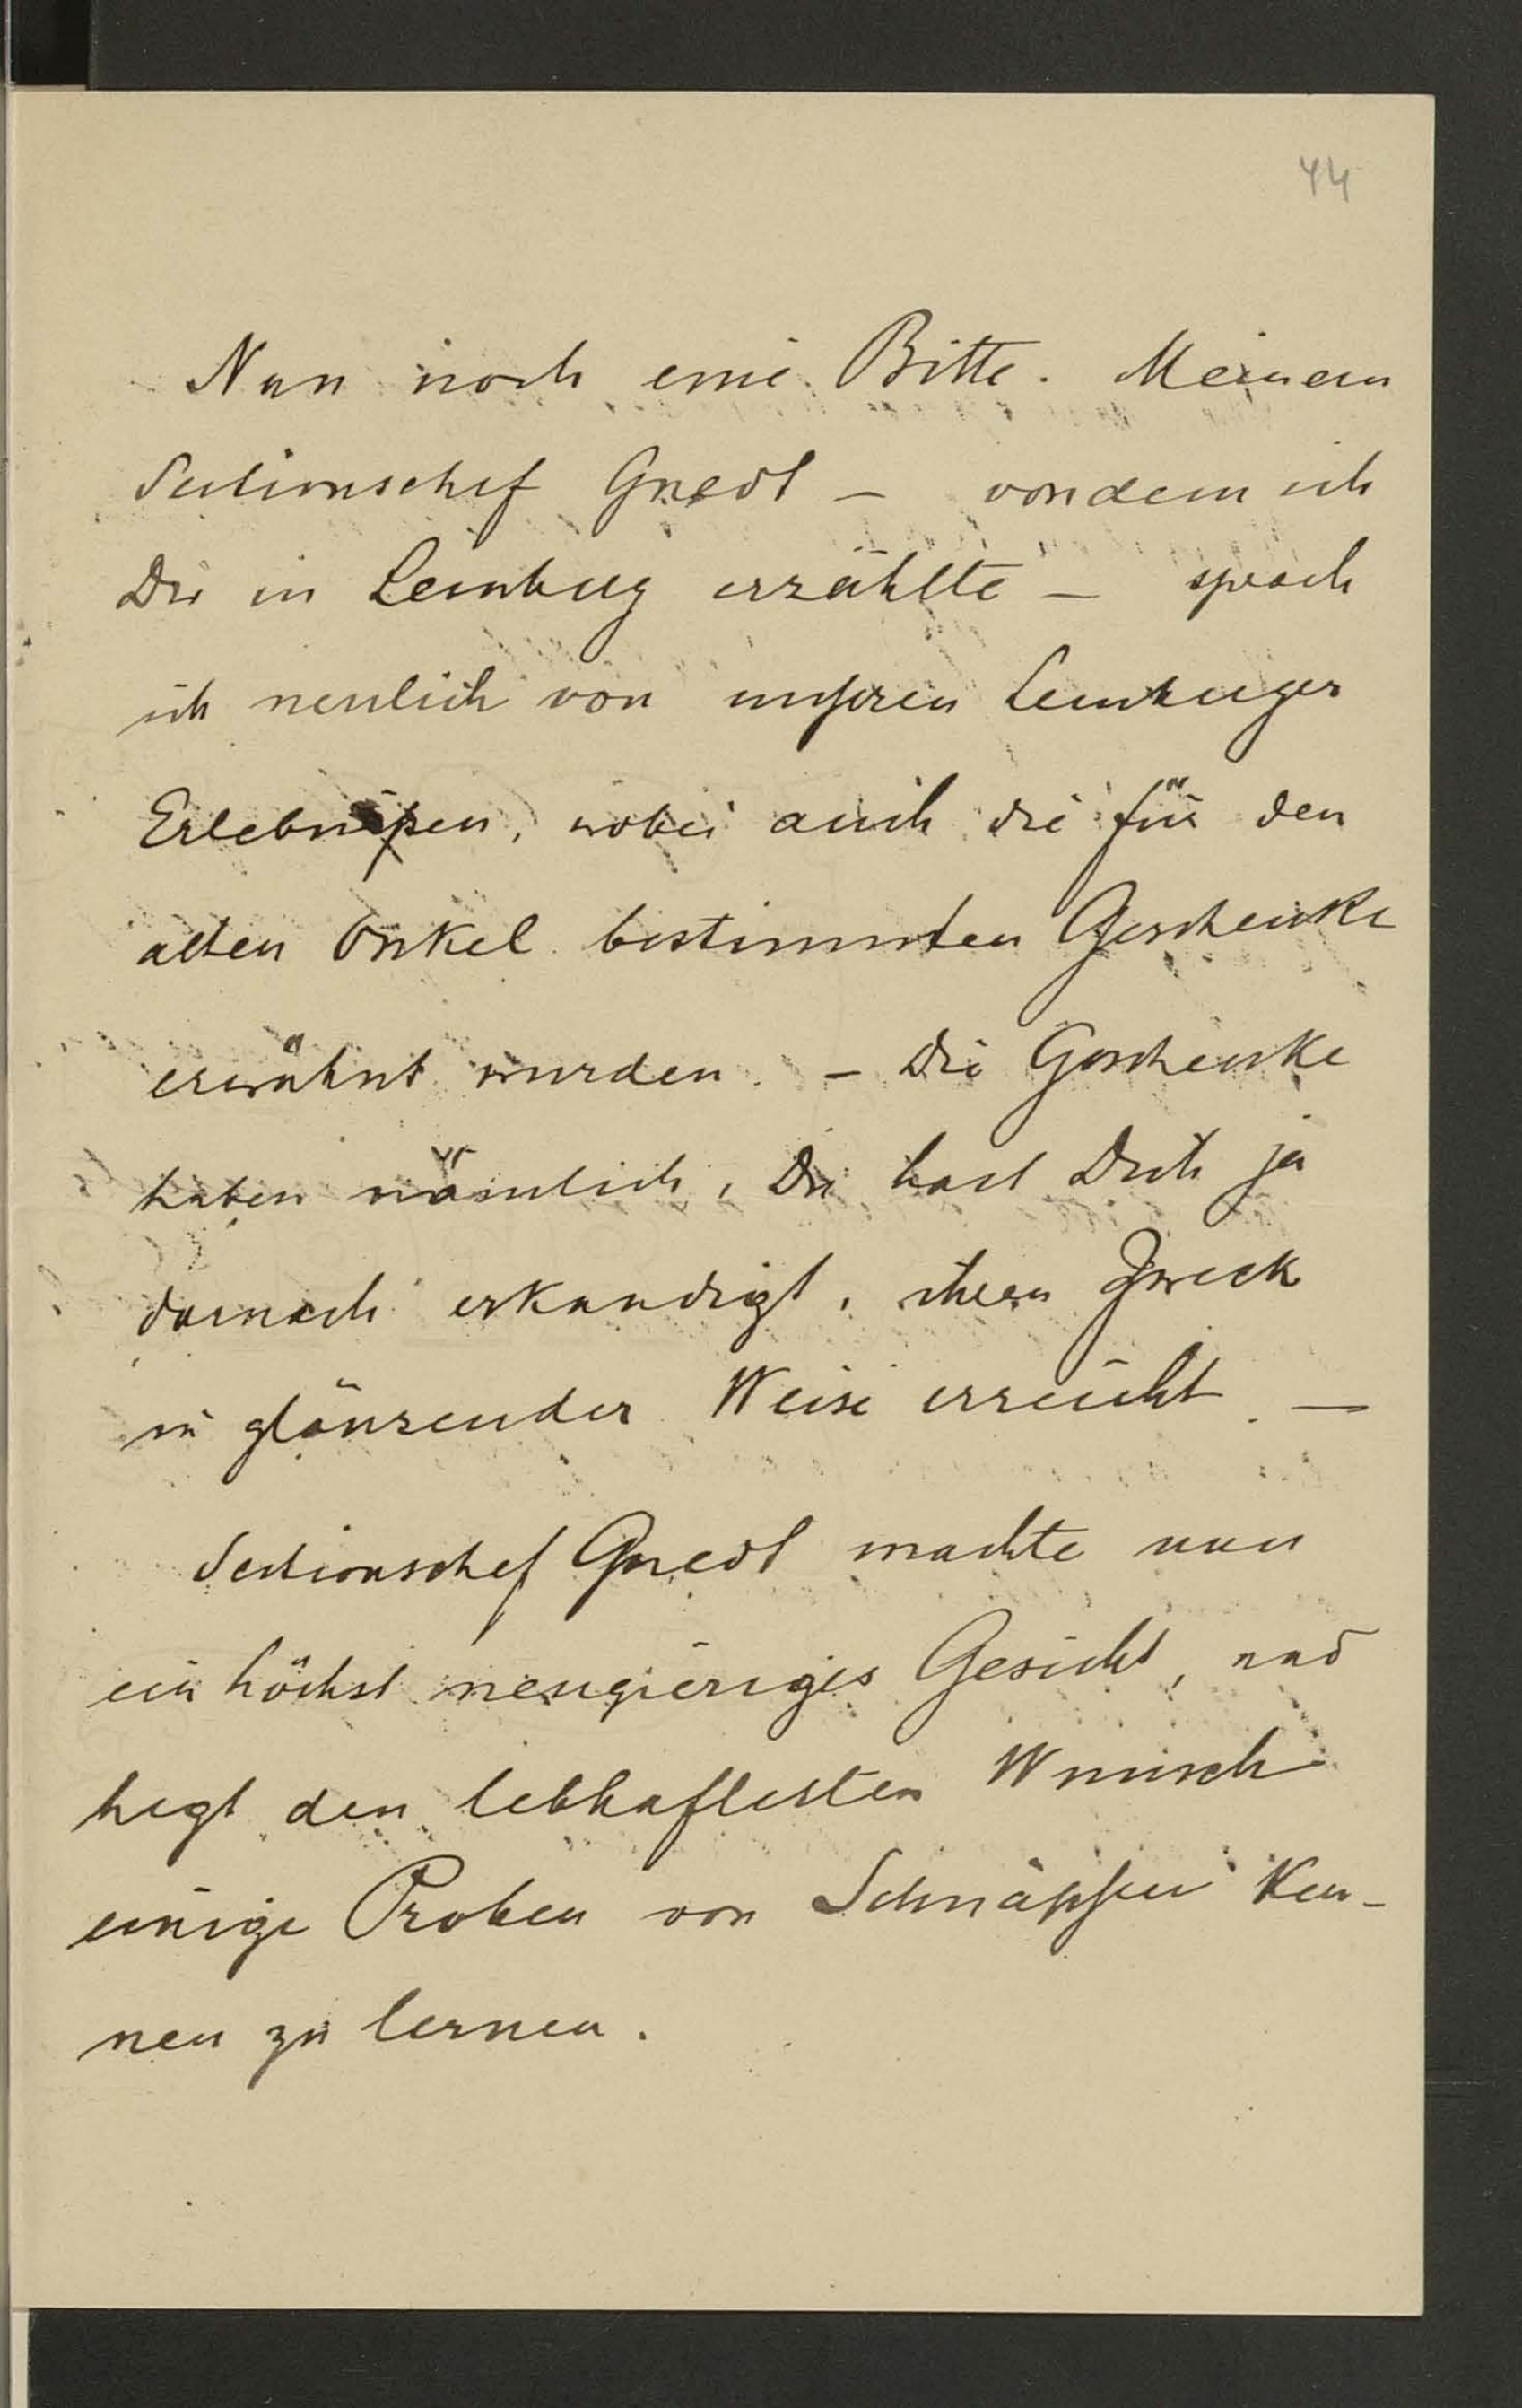 44
Nun noch eine Bitte. Meinem
Sectionschef Gnedt – von dem ich
Dir in Lemberg erzählte – sprach
ich neulich von unseren Lemberger
Erlebnißen, wobei auch die für den
alten Onkel bestimmten Geschenke
erwähnt wurden. – Die Geschenke
haben nämlich, Du hast Dich ja
darnach erkundigt, ihren Zweck
in glänzender Weise erreicht. –
Sectionschef Gnedt machte nun
ein höchst neugieriges Gesicht, und
hegt den lebhaftesten Wunsch
einige Proben von Schnäpsen ken-
nen zu lernen.